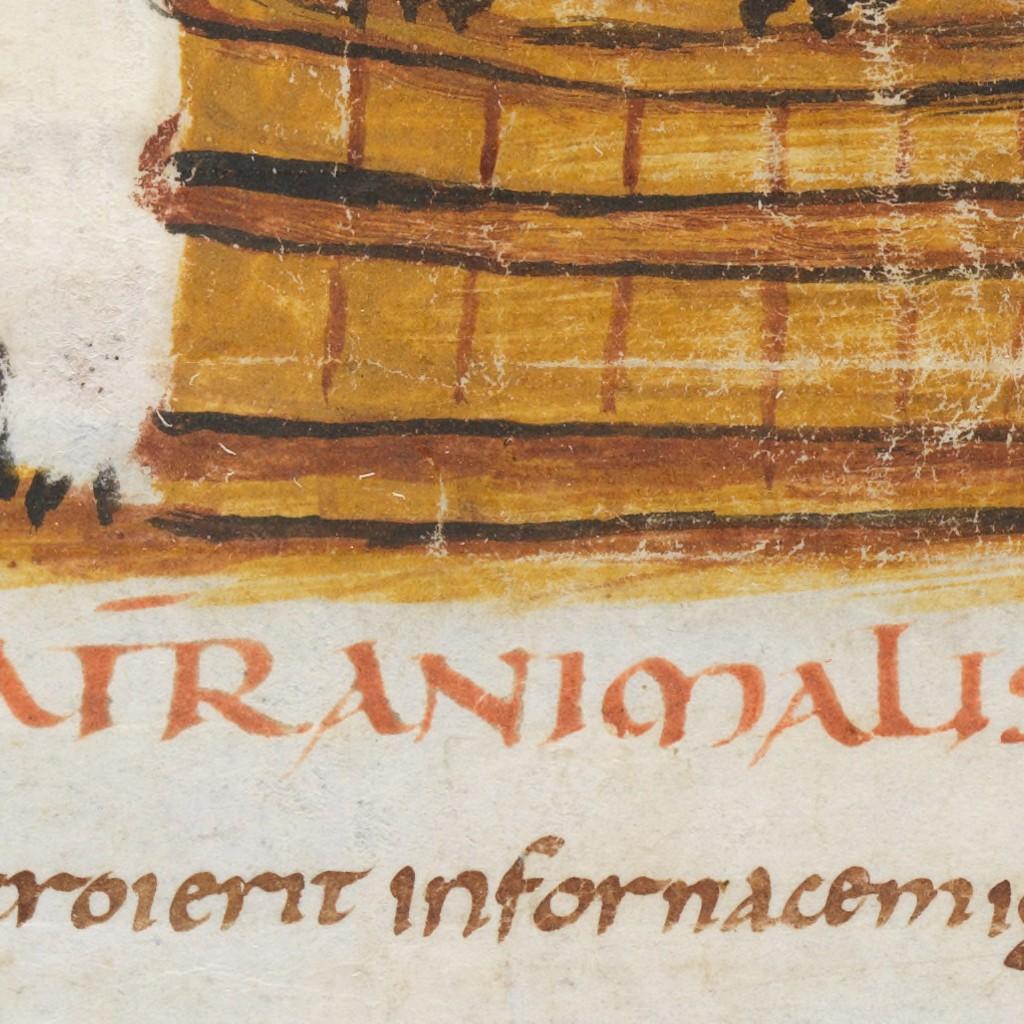 ATRANIMALIS
troierit infornacem ig